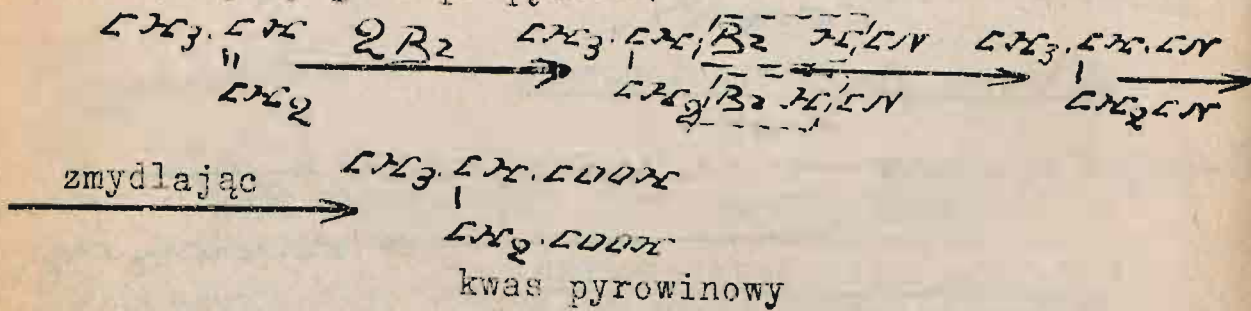 CH3.CH 2Br CH3.CH Br H CN CH3.CH.CN
"
CH2 CH2 Br H CN CH2CN
zmydlając CH3.CH.COOH
CH2.COOH
kwas pyrowinowy